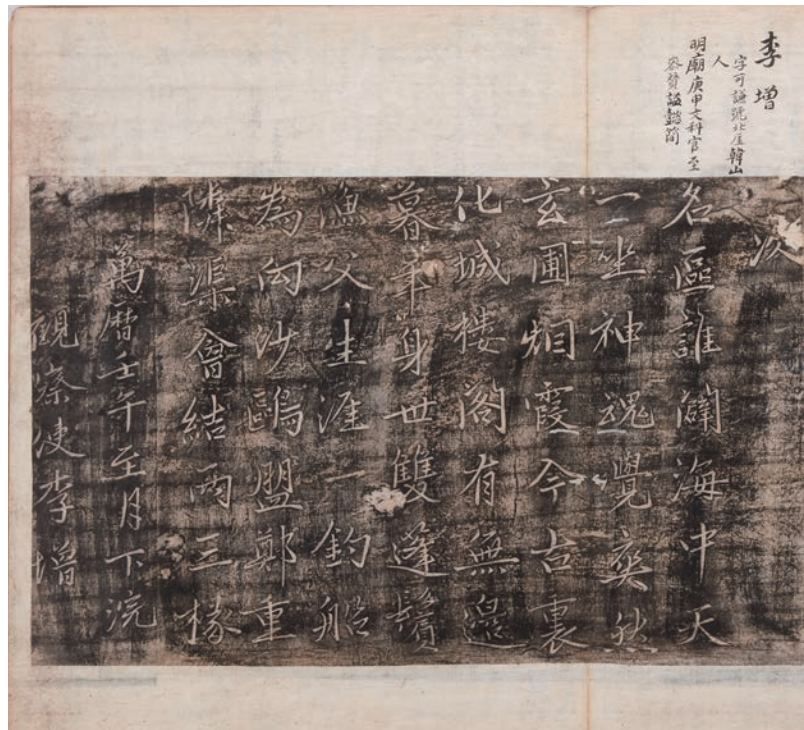 李增
字可謙號北崖韓山
人
明廟庚申文科官至
參贊謚懿簡
次
名區誰闢海中天
一坐神魂覺爽然
玄圃烟霞今古裏
化城樓閣有無邊
暮年身世雙蓬鬢
漁父生涯一釣船
為向沙鷗盟鄭重
隣渠會結兩三椽
萬曆壬午至月下浣
觀察使李增